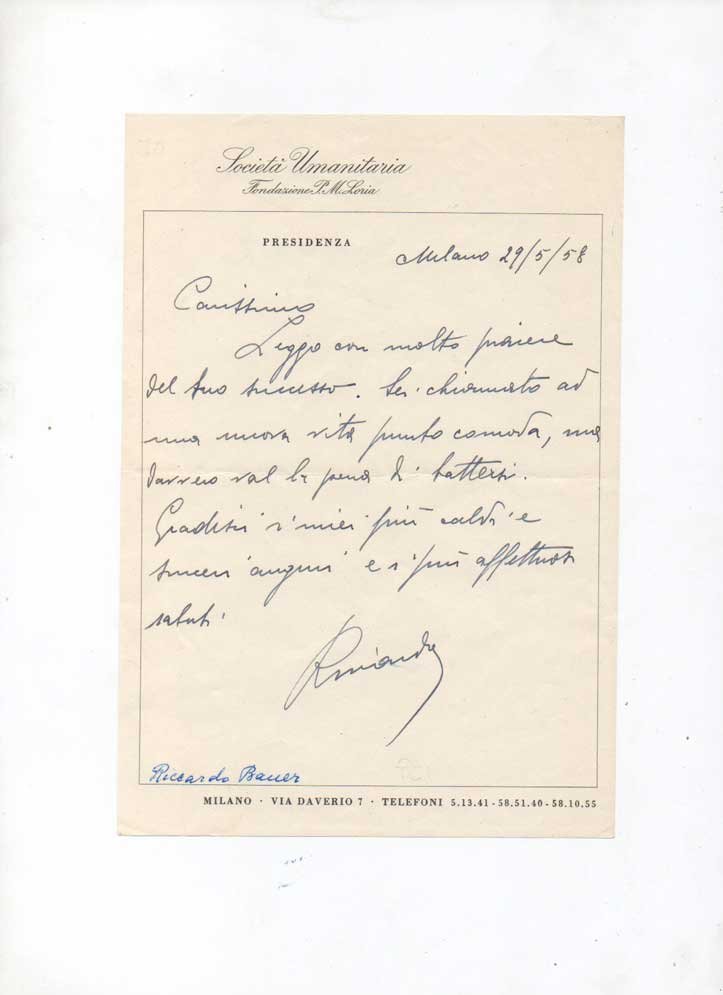 Società Umanitaria
Fondazione P. M. Loria
PRESIDENZA
Milano 29/5/58
Carissimo
Leggo con molto piacere
del tuo successo. Sei chiamato ad
una nuova vita punto comoda, ma
davvero val la pena di battersi.
Gradisci i miei più caldi e
sinceri auguri e i più affettuosi
saluti.
Riccardo
Riccardo Bauer
MILANO · VIA DAVERIO 7 · TELEFONI 5.13.41 - 58.51.40 - 58.10.55